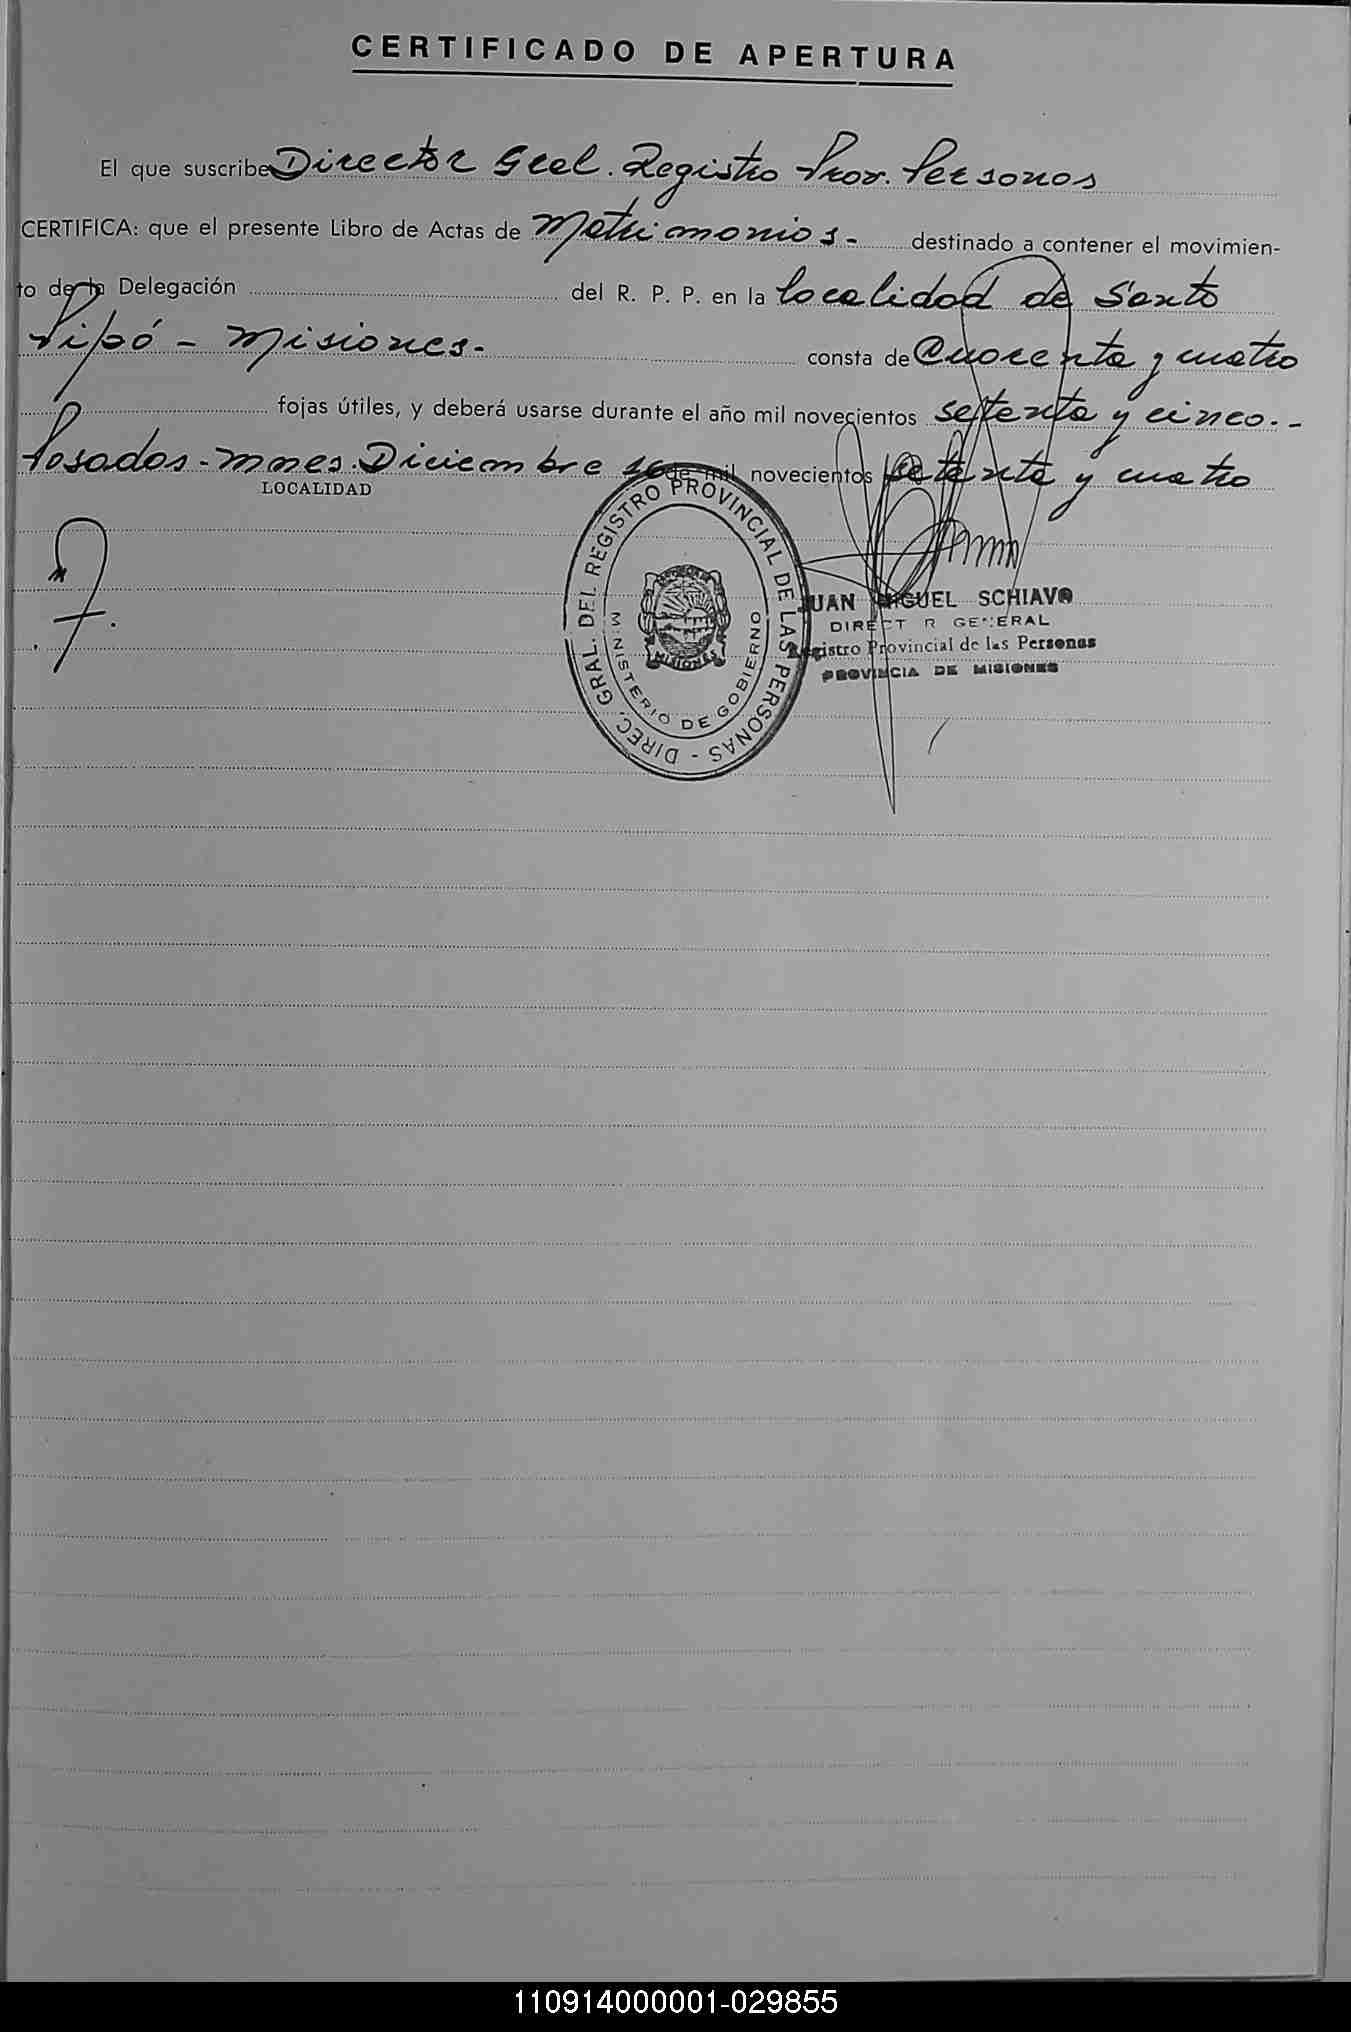 CERTIFICADO DE APERTURA
El que suscribe Director Gral. Registro Prov. Personas
CERTIFICA: que el presente Libro de Actas de Matrimonios.- destinado a contener el movimien-
to de la Delegación del R. P. P. en la localidad de Santo
Pipó - Misiones.- consta de Cuarenta y cuatro
fojas útiles, y deberá usarse durante el año mil novecientos setenta y cinco.-
Posadas - Mnes. Diciembre 16 de mil novecientos setenta y cuatro
LOCALIDAD
DIREC. GRAL. DEL REGISTRO PROVINCIAL DE LAS PERSONAS -
MINISTERIO DE GOBIERNO
MISIONES
JUAN MIGUEL SCHIAVO
DIRECT R GENERAL
Registro Provincial de las Personas
PROVINCIA DE MISIONES
110914000001-029855